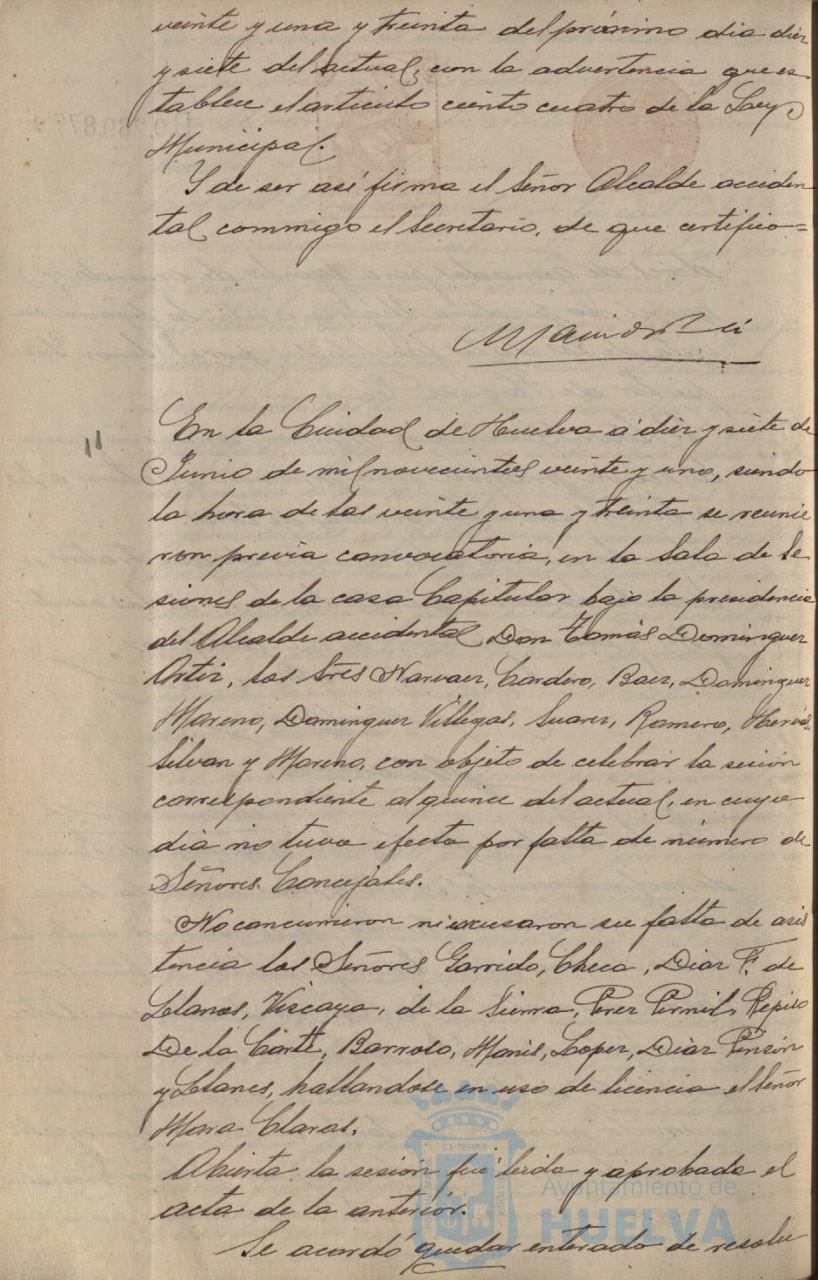 veinte y una y treinta del próximo dia diez
y siete del actual, con la advertencia que es-
tablece el articulo ciento cuatro de la Ley
Municipal.
Y de ser así firma el Señor Alcalde acciden
tal conmigo el Secretario, de que certifico=
En la Ciudad de Huelva á diez y siete de
Junio de mil novecientos veinte y uno, siendo
la hora de las veinte y una y treinta se reunie
ron previa convocatoria, en la Sala de Se
siones de la casa Capitular bajo la presidencia
del Alcalde accidental Don Tomás Dominguez
Ortiz, los Sres Narvaez, Cordero, Baez, Dominguez
Moreno, Dominguez Villegas, Suarez, Romero,
Silvan y Moreno, con objeto de celebrar la sesión
correspondiente al quince del actual, en cuyo
dia no tuvo efecto por falta de número de
Señores Concejales.
No concurrieron ni excusaron su falta de asis
tencia los Señores Garrido, Checa, Diaz F. de
Llanos, Vizcaya, de la Sierra, Perez
De la Corte, Barroso, Monis, Lopez, Diaz Pinzón
y Llanes, hallandose en uso de licencia el Señor
Mora Claros.
Abierta la sesión fué leida y aprobada el
acta de la anterior.
Se acordó quedar enterado de resolu
Ayuntamiento de
HUELVA